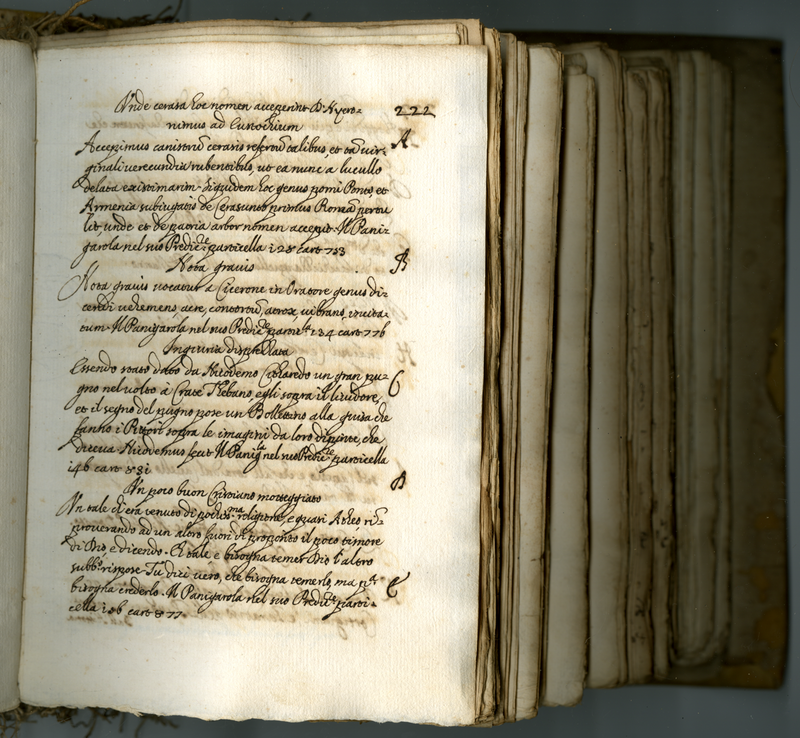 Vnde cerasa hoc nomen acceperint D. Hyero-
nimus ad Eustochium
222
Accepimus canistrũ cerasis refertũ talibus, et tã vir-
A
ginali verecundia rubentibus, ut ea nunc a lucullo
delata existimarim. Siquidem hoc genus pomi Ponto, et
Armenia subiugatis de Cerasunto primus Romã pertu
lit, unde et de patria arbor nomen accepit. Il Pani-
garola nel suo Predic.re particella 128 cart 753
Nota gravis
B
Nota gravis vocatur a Cicerone in Oratore genus di-
cendi vehemens, acre, contortũ, atrox, vibrans, incita-
tum. Il Panigarola nel suo Predic.re partic.la 134 cart 776
Ingiuria dispettata
Essendo stato dato da Nicodemo Citaredo un gran pu-
C
gno nel volto à Crate Thebano, egli sopra il lividore,
et il segno del pugno pose un Bollettino alla guisa che
fanno i Pittori sopra le imagini da loro dipinte, che
diceva Nicodemus fecit. Il Panig.la nel suo Predic.re particella
146 cart 831
Un poco buon Cristiano motteggiato
D
Un tale di età venuto di pochiss.ma religione, e quasi Ateo rim-
proverando ad un altro fuori di proposito il poco timore
di Dio, e dicendo. O tale e bisogna temer Dio l'altro
subb.o rispose Tu dici vero, che bisogna temerlo, ma p.a
E
bisogna crederlo. Il Panigarola nel suo Predic.re parti-
cella 156 cart 877